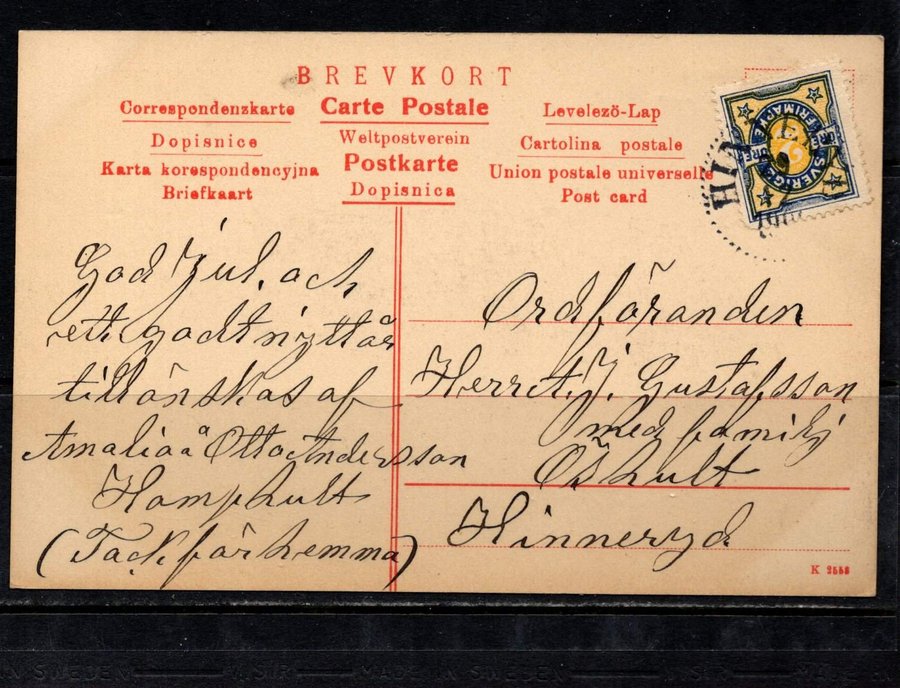 BREVKORT
Correspondenzkarte Carte Postale Levelező-Lap
Dopisnice Weltpostverein Cartolina postale
Karta korespondencyjna Postkarte Union postale universelle
Briefkaart Dopisnica Post card
SVERIGE
FRIMÄRKE
ÖRE
2
HIN
God Jul, och
ett godt nytt år
tillönskas af
Amalia å Otto Andersson
Hamphult
(Tack för hemma)
Ordföranden
Herr J. Gustafsson
med familj
Öshult
Hinneryd
K 2558
MADE IN SWEDEN